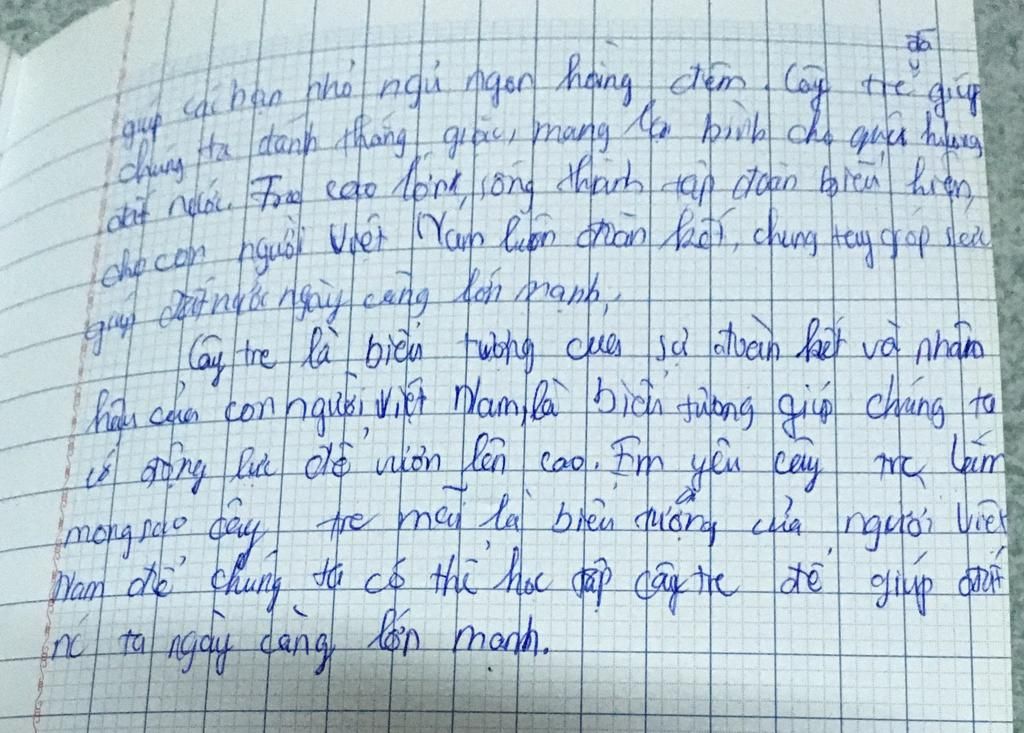 đã
giúp các bạn nhỏ ngủ ngon hàng đêm. Cây tre giúp
chúng ta đánh thắng giặc, mang lại bình cho quê hương
đất nước. Tre cao lớn, sống thành tập đoàn biểu hiện,
cho con người Việt Nam luôn đoàn kết, chung tay góp sức
giúp đất nước ngày càng lớn mạnh,
Cây tre là biểu tượng của sự đoàn kết và nhân
hậu của con người Việt Nam, là biểu tượng giúp chúng ta
có động lực để vươn lên cao. Em yêu cây tre lắm
mong sao cây tre mãi là biểu tượng của người Việt
Nam để chúng ta có thể học tập cây tre để giúp đất
nc ta ngày càng lớn mạnh.